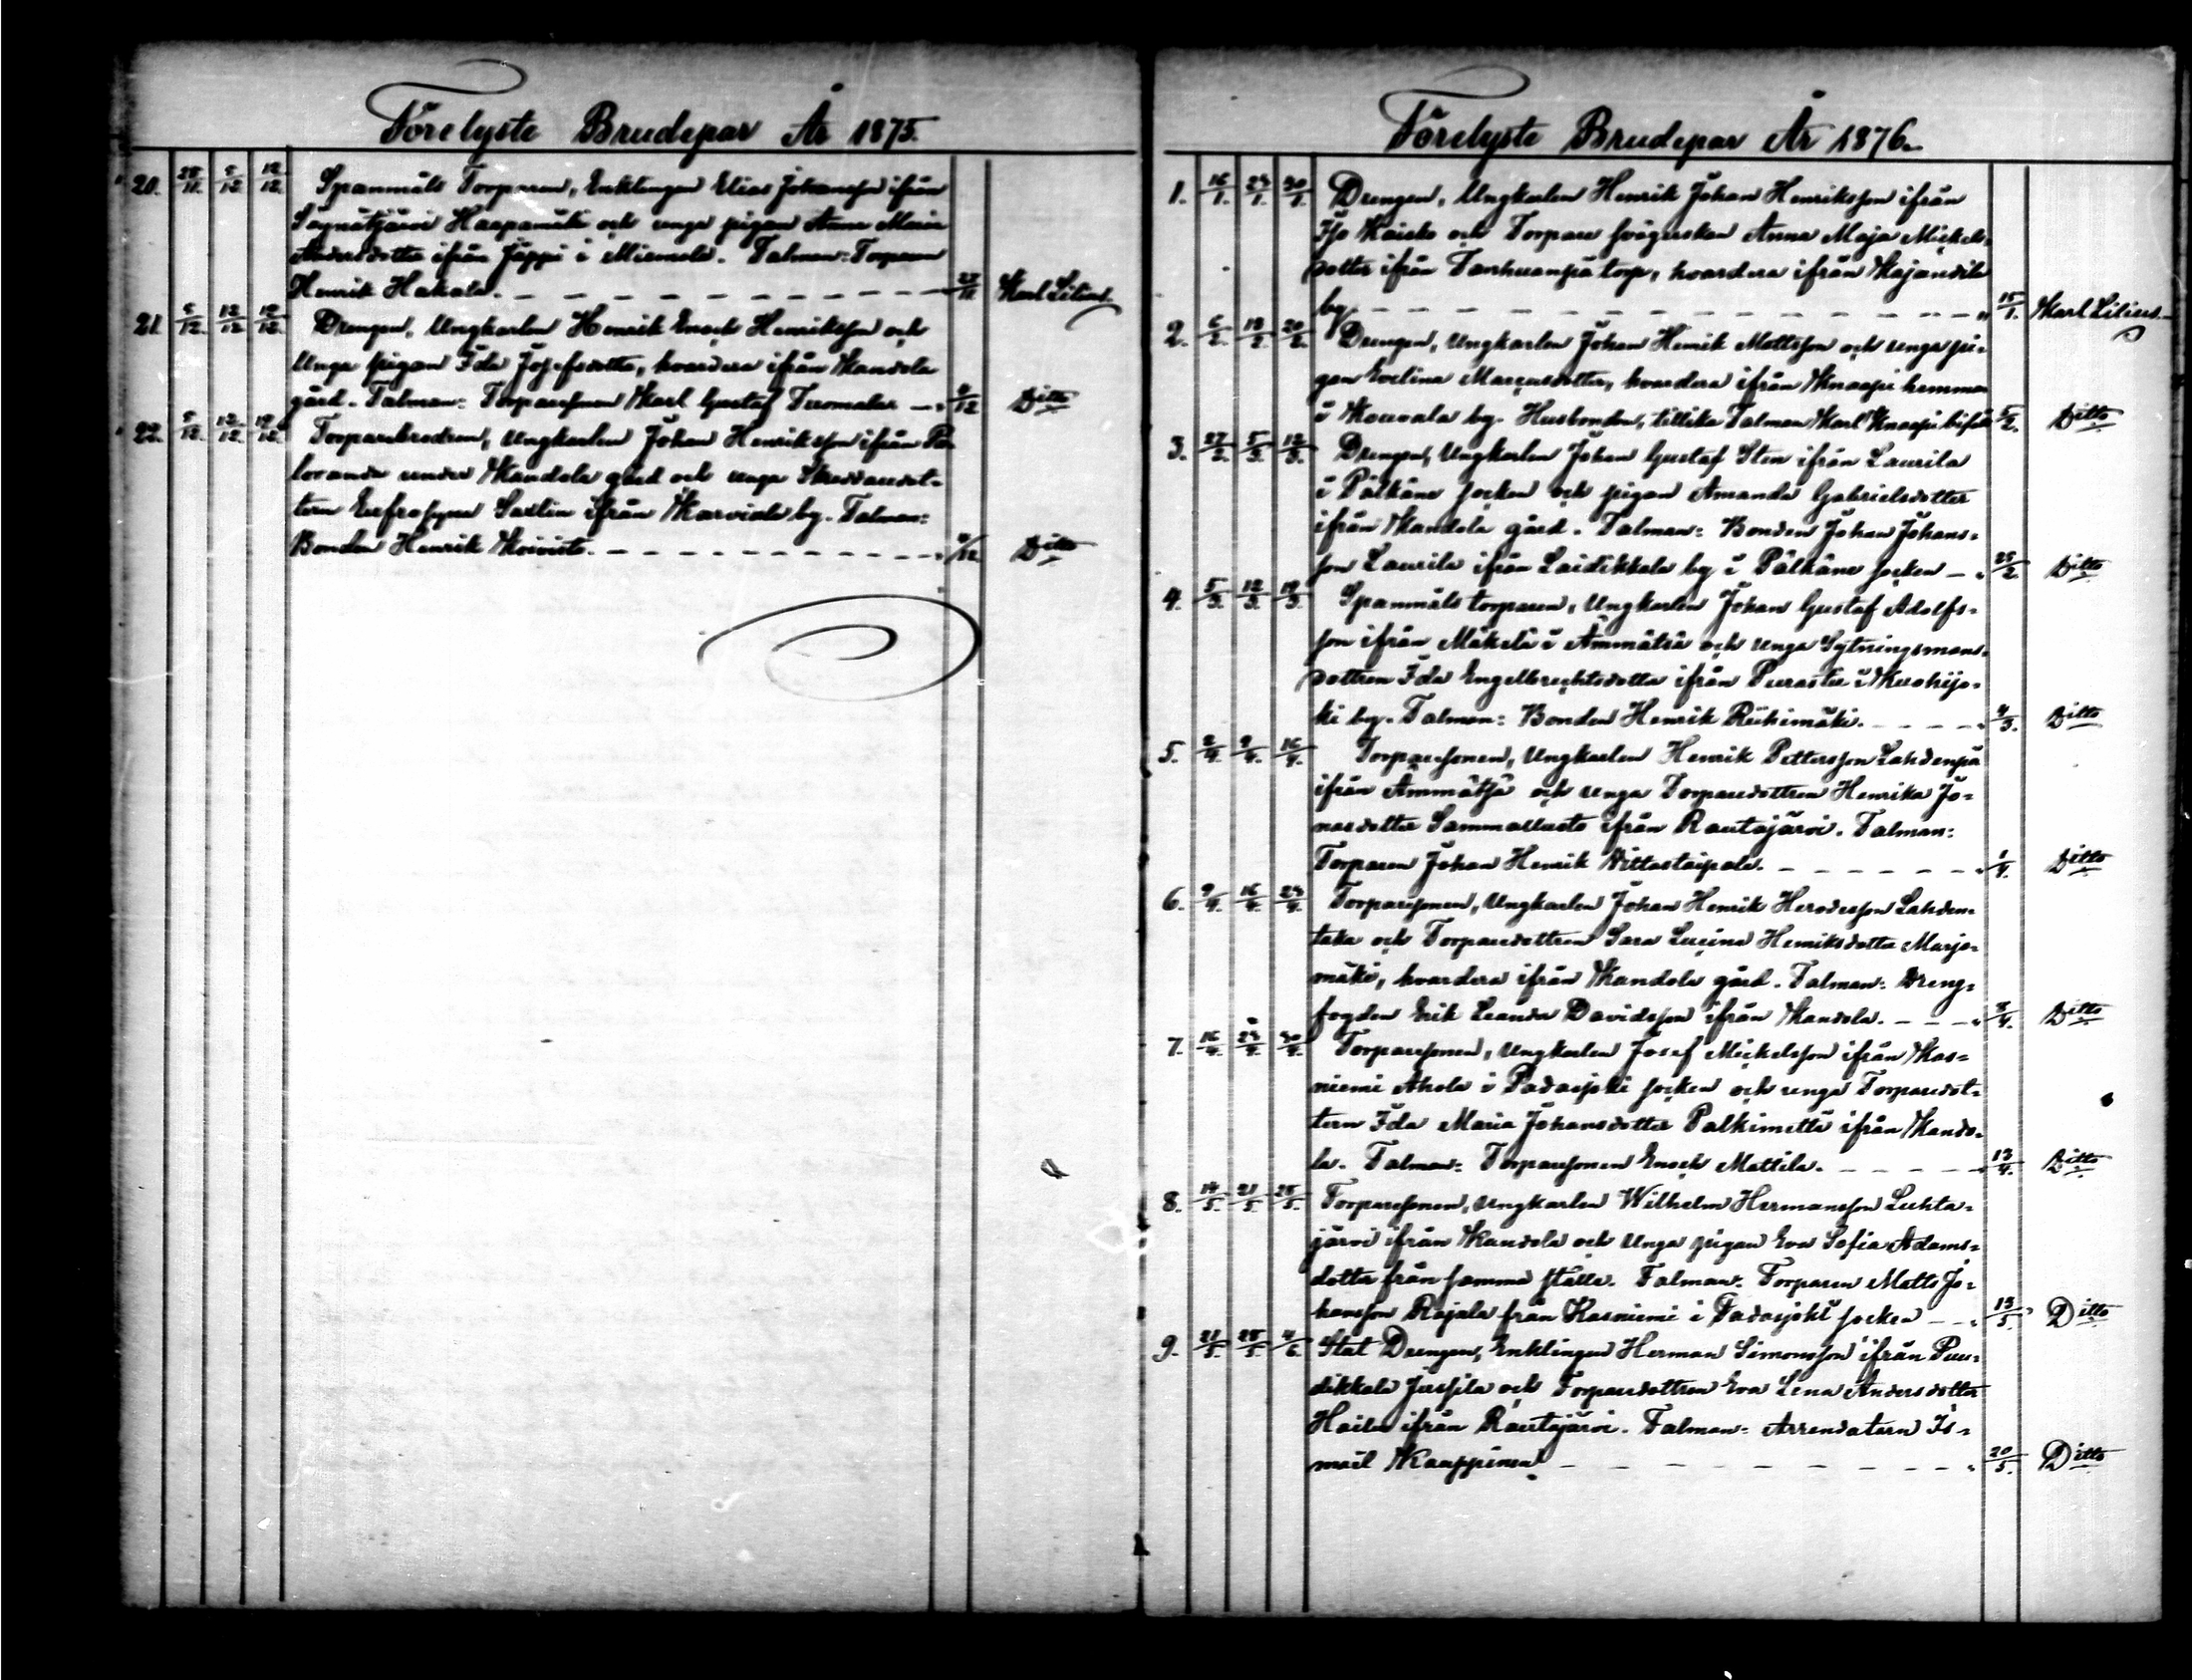 Förelyste Brudepar År 1875.
20. 28/11. 5/12 12/12. Spanmåls Torparen, Enklingen Elias Johansson ifrån
Haapamäki och unga pigan Anna Maria
Andersdotter ifrån Jäppi i Miemola. Talman: Torparen
Henrik Hakala. 27/11. Karl Lilius.
21. 5/12. 12/12 19/12. Drengen, Ungkarlen Henrik Enoch Henriksson och
Unga pigan Ida Josefsdotter, hvardera ifrån Kandola
gård. Talman: Torparesonen Karl Gustaf Tuomala 4/12 Ditto
22. 5/12. 12/12. 19/12. Torparebrodren, Ungkarlen Johan Henriksson ifrån Pa
loranda under Kandola gård och unga Skreddaredot-
tern Eufrosyne Saxlin ifrån Karviala by. Talman:
Bonden Henrik Koivisto. 4/12. Ditto
Förelyste Brudepar År 1876.
1. 16/1. 23/1. 30/1. Drengen, Ungkarlen Henrik Johan Henriksson ifrån
Iso och Torpare svägerskan Anna Maja Mickels-
dotter ifrån Tanhuanpä torp, hvardera ifrån Kajandila
by 15/1. Karl Lilius.
2. 6/2. 13/2. 20/2. Drengen, Ungkarlen Johan Henrik Mattsson och unga pi-
gan Evelina Marcusdotter, hvardera ifrån Knaapi hemman
i Kouvala by. Husbonden, tillika Talman Karl Knaapi biföll 5/2. Ditto
3. 27/2. 5/3. 12/3. Drengen, Ungkarlen Johan Gustaf Sten ifrån Laurila
i Pälkäne socken och pigan Amanda Gabrielsdotter
ifrån Kandola gård. Talman: Bonden Johan Johans-
son Laurila ifrån Laidikkala by i Pälkäne socken 25/2. Ditto
4. 5/3. 12/3. 19/3. Spanmåls torparen, Ungkarlen Johan Gustaf Adolfs-
son ifrån Mäkelä i Ämmätsä och unga Sytningsmans-
dottren Ida Engelbrechtsdotter ifrån Purastu i Kuohijo-
ki by. Talman: Bonden Henrik Riihimäki. 4/3. Ditto
5. 2/4. 9/4. 16/4. Torparesonen, Ungkarlen Henrik Pettersson Lahdenpä
ifrån Ämmätsä och unga Torparedottren Henrika Jo-
nasdotter Sammallusto ifrån Rautajärvi. Talman:
Torparen Johan Henrik Vittastaipale. 1/4. Ditto
6. 9/4. 16/4. 23/4. Torparesonen, Ungkarlen Johan Henrik Herodesson Lahden-
taka och Torparedottren Sara Lucina Henriksdotter Marjo-
mäki, hvardera ifrån Kandola gård. Talman: Dreng-
fogden Erik Leander Davidsson ifrån Kandola. 8/4. Ditto
7. 16/4. 23/4. 30/4. Torparesonen, Ungkarlen Josef Mickelsson ifrån Kas-
niemi Ahola i Padasjoki socken och unga Torparedot-
tern Ida Maria Johansdotter Palkimetti ifrån Kando-
la. Talman: Torparesonen Enoch Mattila. 13/4. Ditto
8. 14/5. 21/5. 28/5. Torparesonen, Ungkarlen Wilhelm Hermansson Luhta-
järvi ifrån Kandola och Unga pigan Eva Sofia Adams-
dotter från samma ställe. Talman: Torparen Matts Jo-
hansson Rajala från Kasniemi i Padasjoki socken 13/5. Ditto
9. 21/5. 28/5. 4/6. Stat Drengen, Enklingen Herman Simonsson ifrån Puu-
dikkala Jussila och Torparedottren Eva Lena Andersdotter
ifrån Rautajärvi. Talman: Arrendatorn Is-
mail Kauppinen 20/5. Ditto